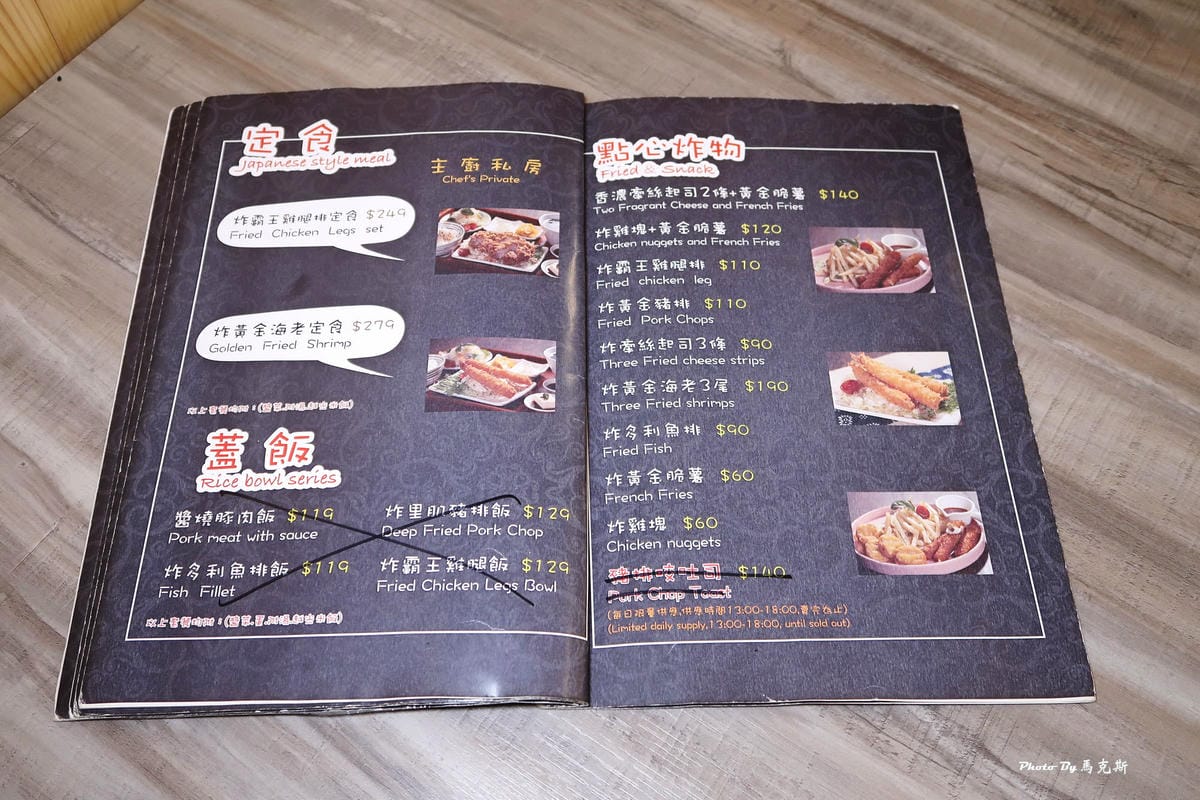 定食
Japanese style meal
主廚私房
Chef's Private
炸霸王雞腿排定食 $249
Fried Chicken Legs set
炸黃金海老定食 $279
Golden Fried Shrimp
以上套餐均附:(
蓋飯
Rice bowl series
醬燒豚肉飯 $119
Pork meat with sauce
炸里肌豬排飯 $129
Deep Fried Pork Chop
炸多利魚排飯 $119
Fish Fillet
炸霸王雞腿飯 $129
Fried Chicken Legs Bowl
以上套餐均附:(
點心炸物
Fried & Snack
香濃牽絲起司2條+黃金脆薯 $140
Two Fragrant Cheese and French Fries
炸雞塊+黃金脆薯 $120
Chicken nuggets and French Fries
炸霸王雞腿排 $110
Fried chicken leg
炸黃金豬排 $110
Fried Pork Chops
炸牽絲起司3條 $90
Three Fried cheese strips
炸黃金海老3尾 $190
Three Fried shrimps
炸多利魚排 $90
Fried Fish
炸黃金脆薯 $60
French Fries
炸雞塊 $60
Chicken nuggets
豬排吐司 $140
Pork Chop Toast
(每日限量供應,供應時間13:00-18:00,賣完為止)
(Limited daily supply,13:00-18:00, until sold out)
Photo By 馬克斯